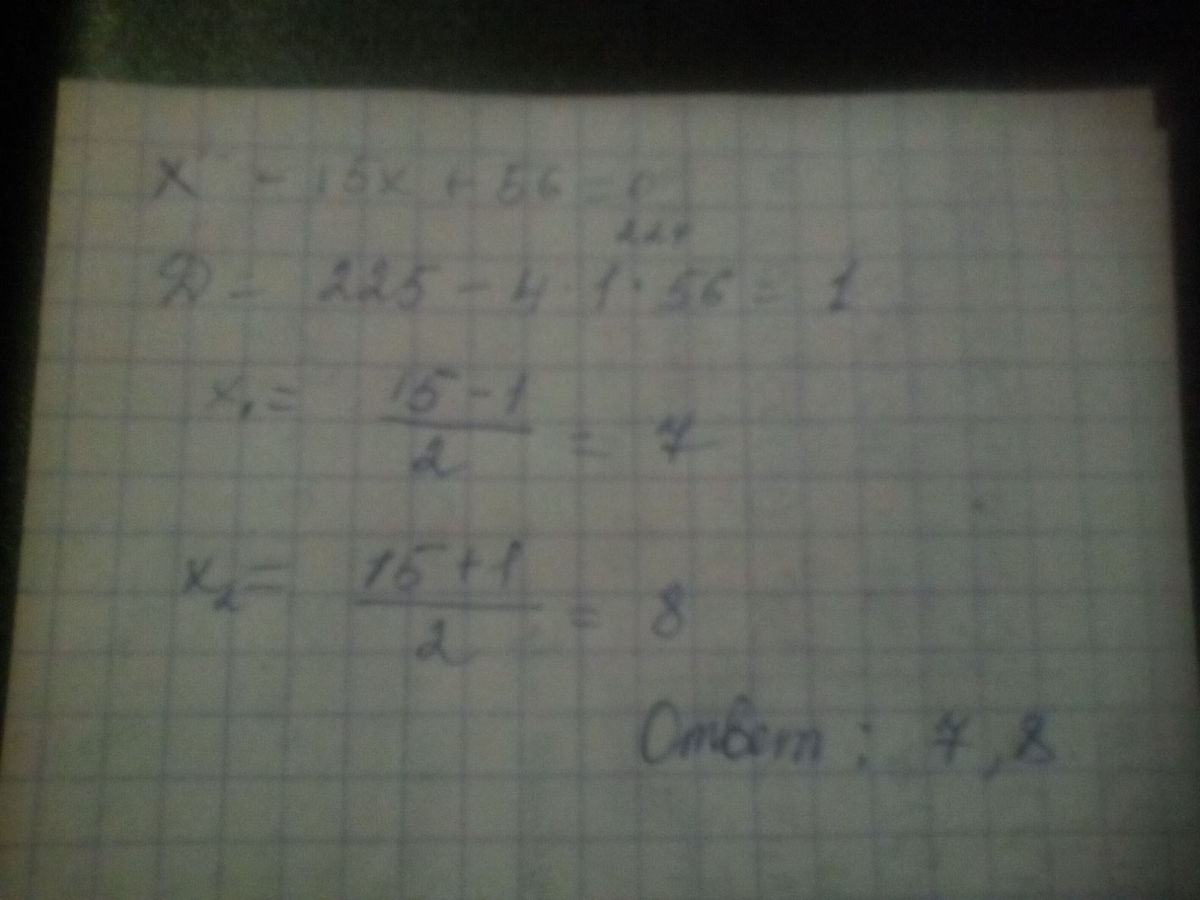 x² - 15x + 56 = 0
224
D = 225 - 4 · 1 · 56 = 1
x₁ = (15 - 1)/2 = 7
x₂ = (15 + 1)/2 = 8
Ответ: 7, 8